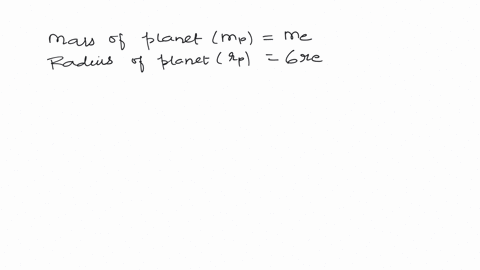 Mass of planet (mp) = me
Radius of planet (rp) = 6re